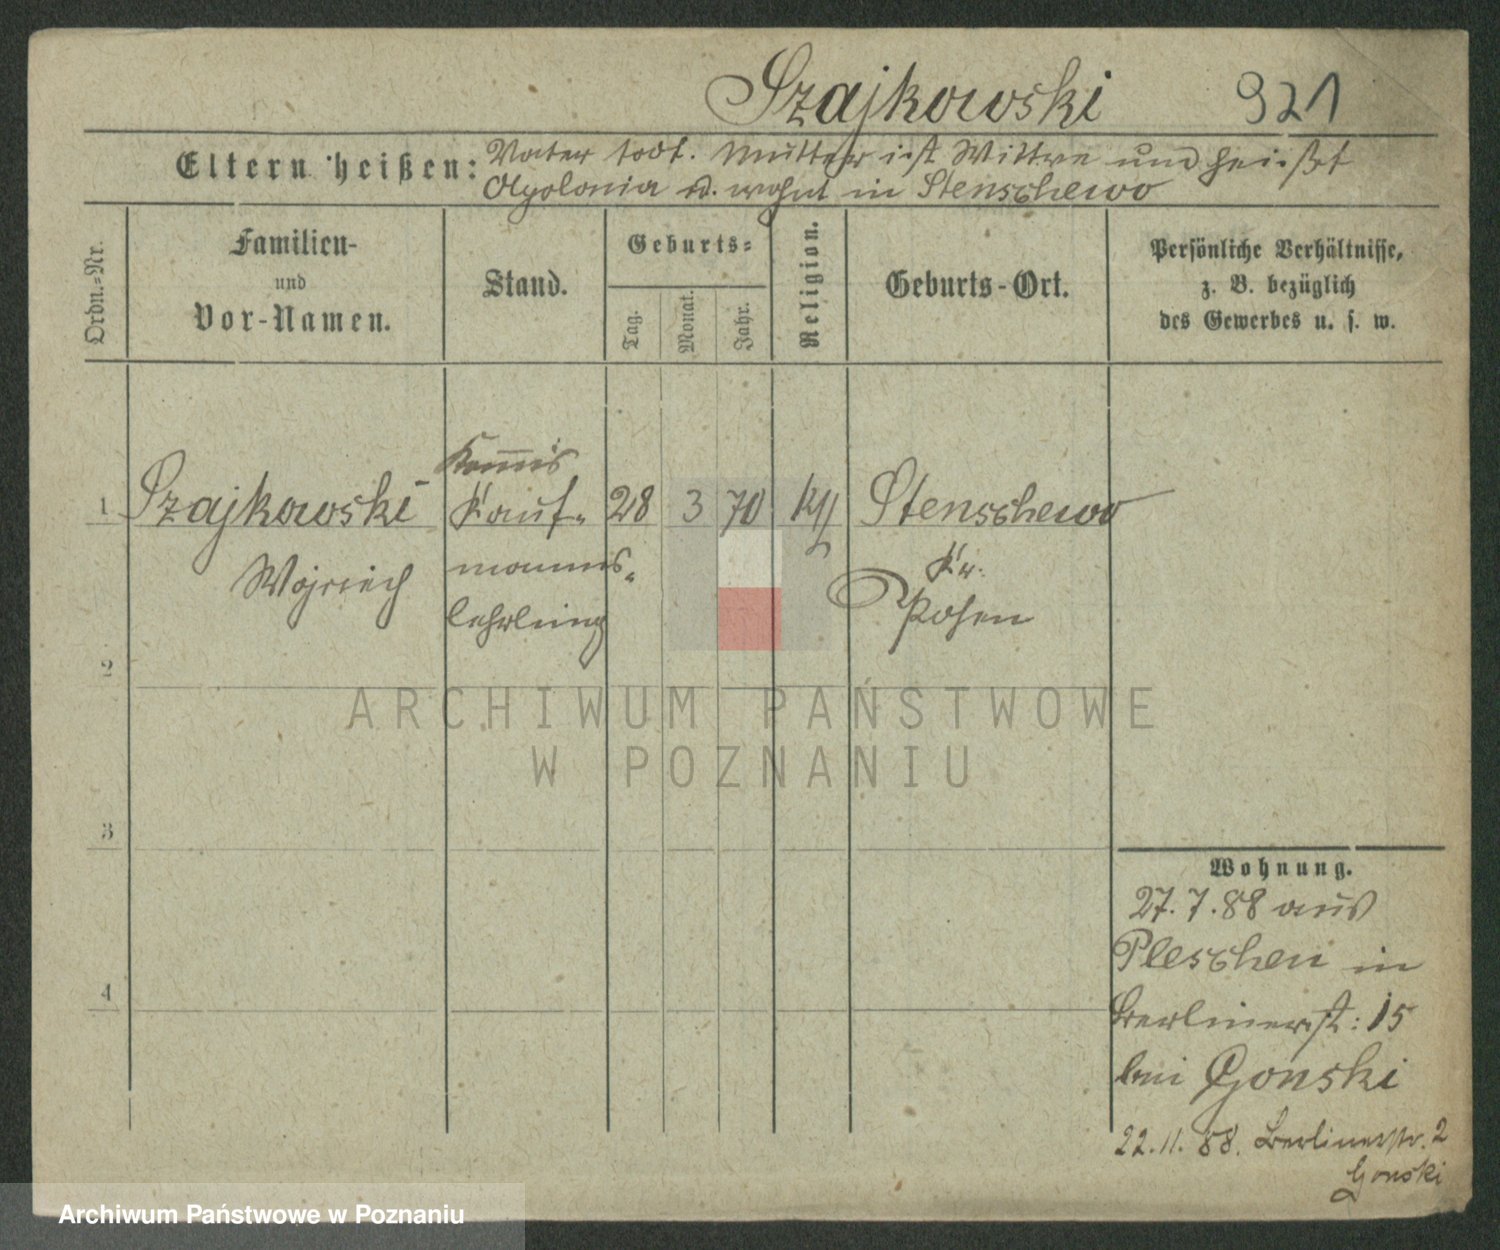 Szajkowski 921
Eltern heißen: Vater todt. Mutter ist Wittwe und heißt
Apolonia u. wohnt in Stenschewo
Ordn.-Nr.
Familien-
und
Vor-Namen.
Stand.
Geburts-
Tag.
Monat.
Jahr.
Religion.
Geburts-Ort.
Persönliche Verhältnisse,
z. B. bezüglich
des Gewerbes u. s. w.
Kommis
1 Szajkowski Kauf- 28 3 70 kth Stenschewo
Wojciech manns- Kr.
lehrling Posen
2
ARCHIWUM PAŃSTWOWE
W POZNANIU
3
Wohnung.
27.7.88 aus
Pleschen in
4
Berlinerst: 15
bei Gonski
22.11.88. Berlinerstr. 2
Gonski
Archiwum Państwowe w Poznaniu